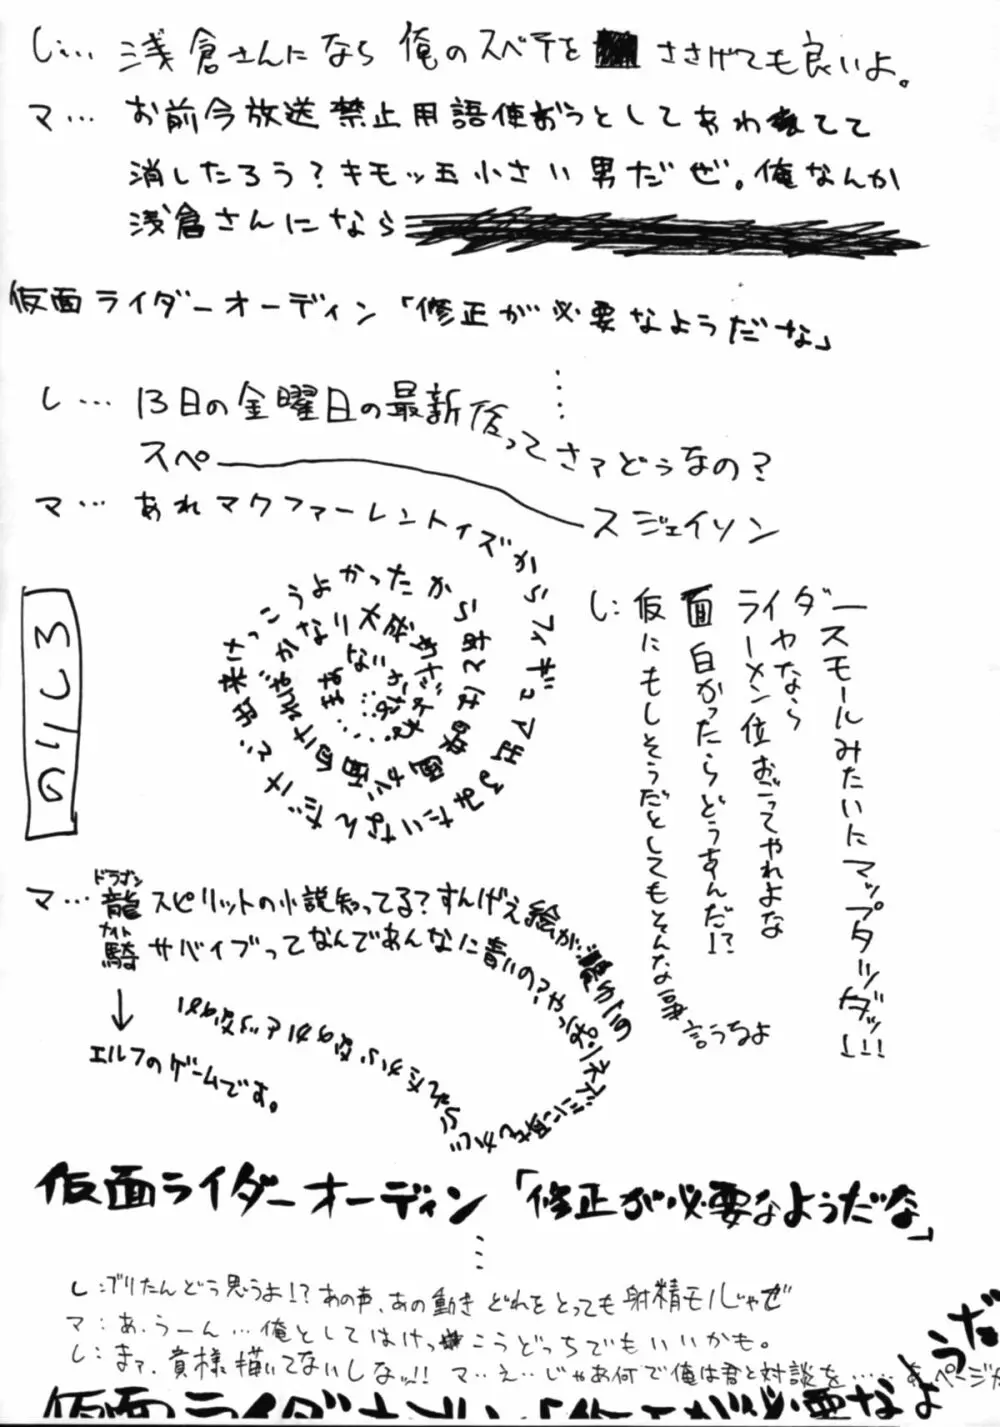 し… 浅倉さんになら俺のスベテをささげても良いよ。
マ… お前今放送禁止用語使おうとしてあわててて
消したろう?キモッ玉小さい男だぜ。俺なんか
浅倉さんになら
仮面ライダーオーディン「修正が必要なようだな」
し… 13日の金曜日の最新作ってさァどうなの?
スペースジェイソン
マ… あれマクファーレントイズからフィギュア出るみたいなんだけど出来
さっこうよかったからあとは映画が面白ければかなり大成
し: 仮にもしそうだとしてもそんな事言うなよ
面白かったらどうすんだ!?
ライヤなら
ラーメン位おごってやれよな
ダースモールみたいにマップタツダッ!!!
のりしろ
マ… 龍騎
ドラゴン
ナイト
スピリットの小説知ってる?すんげえ絵が
サバイブってなんであんなに青いの?やっぱ
↓
エルフのゲームです。
仮面ライダーオーディン「修正が必要なようだな」
し:ブリたんどう思うよ!?あの声、あの動きどれをとっても射精モノじゃぜ
マ:あ、うーん…俺としてはけっこうどっちでもいいかも。
し:まァ、貴様描いてないしなッ!! マ…え…じゃあ何で俺は君と対談を……あ、ページが
仮面ライダーオーディン「修正が必要なようだ